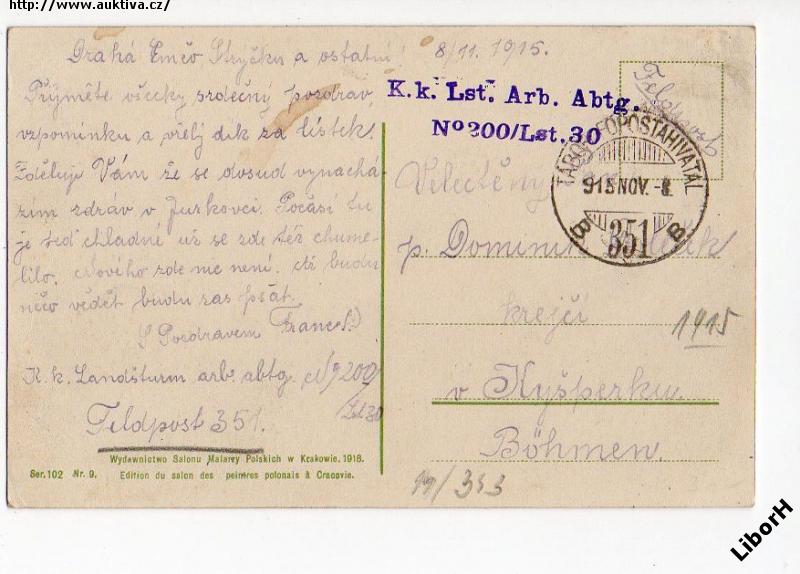 http://www.auktiva.cz/
Drahá Emčo Strýčku a ostatní! 8/11. 1915.
Přijměte všecky srdečný pozdrav,
vzpomínku a vřelý dík za lístek.
Zděluji Vám že se dosud vynachá-
zím zdráv v Jurkovci. Počasí tu
je teď chladné už se zde též chume-
lilo. Nového zde nic není. až budu
něco vědět budu zas psát.
S Pozdravem Franc
K. k. Landšturm arb. abtg. No 200/
Lst 30
Feldpost 351.
Wydawnictwo Salonu Malarzy Polskich w Krakowie. 1918.
Ser. 102 Nr. 9. Edition du salon des peintres polonais à Cracovie.
K. k. Lst. Arb. Abtg.
No 200/Lst. 30
Feldpost
TÁBORI POSTAHIVATAL
915 NOV. -8.
B 351 B
Veletěný
p. Dominik
krejčí
1915
v Kyšperku.
Böhmen.
19/343
LiborH